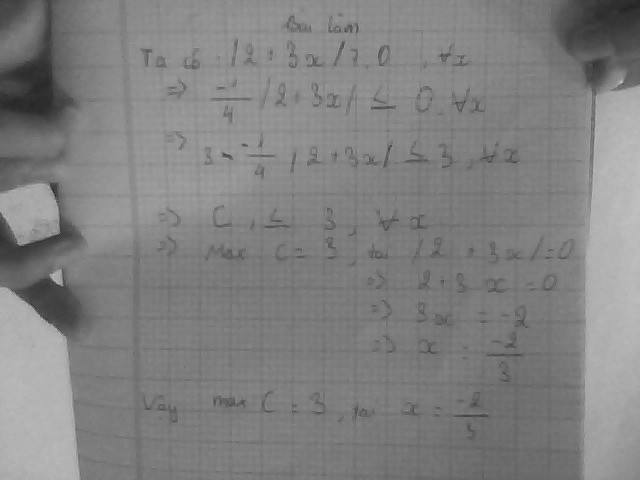 Bài làm
Ta có : |2 + 3x| ≥ 0 , ∀x
=> -1/4 |2 + 3x| ≤ 0, ∀x
=> 3 - -1/4 |2 + 3x| ≤ 3, ∀x
=> C ≤ 3, ∀x
=> Max C = 3, tại |2 + 3x| = 0
=> 2 + 3x = 0
=> 3x = -2
=> x = -2/3
Vậy max C = 3, tại x = -2/3